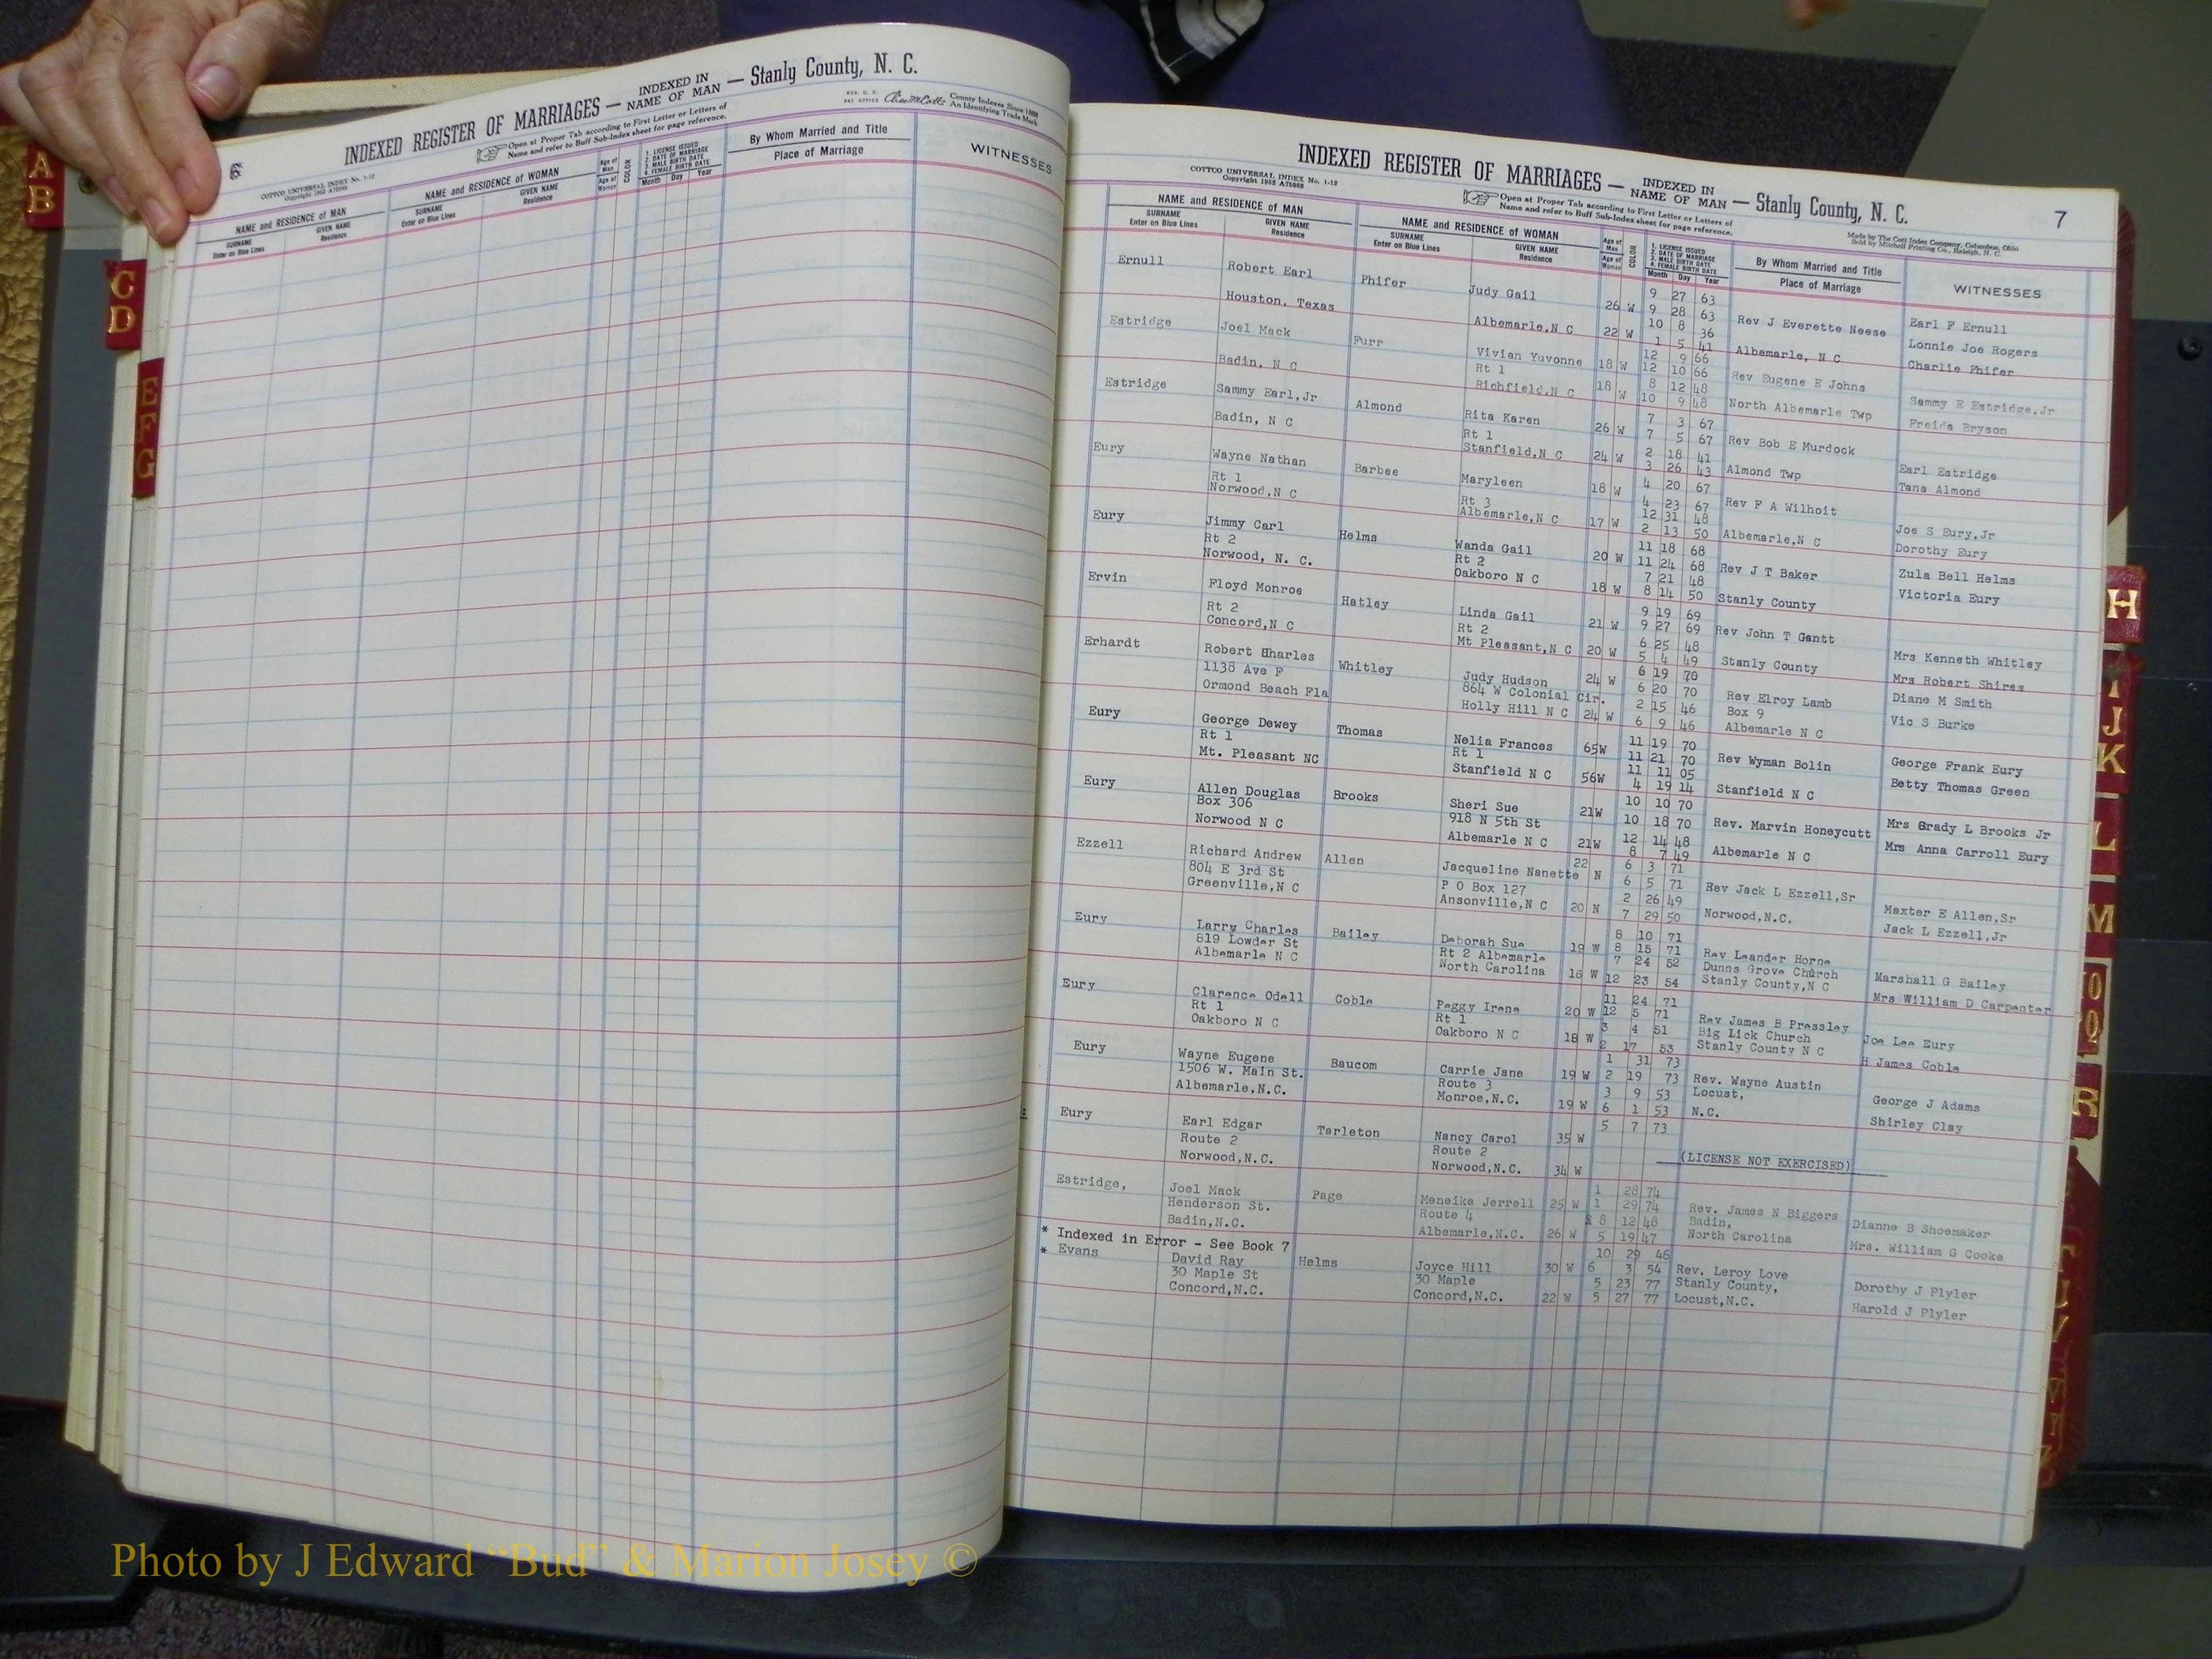 INDEXED REGISTER OF MARRIAGES — INDEXED IN NAME OF MAN — Stanly County, N. C.
6
COTTCO UNIVERSAL INDEX No. 1-12
Copyright 1952 A75068
Open at Proper Tab according to First Letter or Letters of
Name and refer to Buff Sub-Index sheet for page reference.
County Indexes Since 1888
An Identifying Trade Mark
NAME and RESIDENCE of MAN
SURNAME
Enter on Blue Lines
GIVEN NAME
Residence
NAME and RESIDENCE OF WOMAN
SURNAME
Enter on Blue Lines
GIVEN NAME
Residence
Age of Man
Age of Woman
COLOR
1. LICENSE ISSUED
2. DATE OF MARRIAGE
3. MALE BIRTH DATE
4. FEMALE BIRTH DATE
Month Day Year
By Whom Married and Title
Place of Marriage
WITNESSES
A B
C D
E F G
INDEXED REGISTER OF MARRIAGES — INDEXED IN NAME OF MAN — Stanly County, N. C.
7
COTTCO UNIVERSAL INDEX No. 1-12
Copyright 1952 A75068
Open at Proper Tab according to First Letter or Letters of
Name and refer to Buff Sub-Index sheet for page reference.
Made by The Cott Index Company, Columbus, Ohio
Sold by Mitchell Printing Co., Raleigh, N. C.
NAME and RESIDENCE OF MAN
SURNAME
Enter on Blue Lines
GIVEN NAME
Residence
NAME and RESIDENCE OF WOMAN
SURNAME
Enter on Blue Lines
GIVEN NAME
Residence
Age of Man
Age of Woman
COLOR
1. LICENSE ISSUED
2. DATE OF MARRIAGE
3. MALE BIRTH DATE
4. FEMALE BIRTH DATE
Month Day Year
By Whom Married and Title
Place of Marriage
WITNESSES
Ernull Robert Earl Phifer Judy Gail 26 W 9 27 63 Rev J Everette Neese Earl F Ernull
9 28 63 Lonnie Joe Rogers
Houston, Texas Albemarle,N C 22 W 10 8 36 Albemarle, N C Charlie Phifer
1 5 41
Estridge Joel Mack Furr Vivian Yuvonne 18 W 12 9 66 Rev Eugene E Johns Sammy E Estridge,Jr
Rt 1 12 10 66
Badin, N C Richfield,N C 18 W 8 12 48 North Albemarle Twp Freida Bryson
10 9 48
Estridge Sammy Earl,Jr Almond Rita Karen 26 W 7 3 67 Rev Bob E Murdock Earl Estridge
Rt 1 7 5 67
Badin, N C Stanfield,N C 24 W 2 18 41 Almond Twp Tana Almond
3 26 43
Eury Wayne Nathan Barbee Maryleen 18 W 4 20 67 Rev F A Wilhoit Joe S Eury,Jr
Rt 1 Rt 3 4 23 67
Norwood,N C Albemarle,N C 17 W 12 31 48 Albemarle,N C Dorothy Eury
2 13 50
Eury Jimmy Carl Helms Wanda Gail 20 W 11 18 68 Rev J T Baker Zula Bell Helms
Rt 2 Rt 2 11 24 68
Norwood, N. C. Oakboro N C 18 W 7 21 48 Stanly County Victoria Eury
8 14 50
Ervin Floyd Monroe Hatley Linda Gail 21 W 9 19 69 Rev John T Gantt Mrs Kenneth Whitley
Rt 2 Rt 2 9 27 69
Concord,N C Mt Pleasant,N C 20 W 6 25 48 Stanly County Mrs Robert Shires
5 4 49
Erhardt Robert Charles Whitley Judy Hudson 24 W 6 19 70 Rev Elroy Lamb Diane M Smith
1138 Ave F 864 W Colonial Cir. 6 20 70 Box 9
Ormond Beach Fla Holly Hill N C 24 W 2 15 46 Albemarle N C Vic S Burke
6 9 46
Eury George Dewey Thomas Nelia Frances 65W 11 19 70 Rev Wyman Bolin George Frank Eury
Rt 1 Rt 1 11 21 70
Mt. Pleasant NC Stanfield N C 56W 11 11 05 Stanfield N C Betty Thomas Green
4 19 14
Eury Allen Douglas Brooks Sheri Sue 21W 10 10 70 Rev. Marvin Honeycutt Mrs Grady L Brooks Jr
Box 306 918 N 5th St 10 18 70
Norwood N C Albemarle N C 21W 12 14 48 Albemarle N C Mrs Anna Carroll Eury
8 7 49
Ezzell Richard Andrew Allen Jacqueline Nanette 22 N 6 3 71 Rev Jack L Ezzell,Sr Maxter E Allen,Sr
804 E 3rd St P O Box 127 6 5 71
Greenville,N C Ansonville,N C 20 N 2 26 49 Norwood,N.C. Jack L Ezzell,Jr
7 29 50
Eury Larry Charles Bailey Deborah Sue 19 W 8 10 71 Rev Leander Horne Marshall G Bailey
819 Lowder St Rt 2 Albemarle 8 15 71 Dunns Grove Church
Albemarle N C North Carolina 16 W 7 24 52 Stanly County,N C Mrs William D Carpenter
12 23 54
Eury Clarence Odell Coble Peggy Irene 20 W 11 24 71 Rev James B Pressley Joe Lee Eury
Rt 1 Rt 1 12 5 71 Big Lick Church
Oakboro N C Oakboro N C 18 W 3 4 51 Stanly County N C H James Coble
2 17 53
Eury Wayne Eugene Baucom Carrie Jane 19 W 1 31 73 Rev. Wayne Austin George J Adams
1506 W. Main St. Route 3 2 19 73 Locust,
Albemarle,N.C. Monroe,N.C. 19 W 3 9 53 N.C. Shirley Clay
6 1 53
Eury Earl Edgar Tarleton Nancy Carol 35 W 5 7 73
Route 2 Route 2
Norwood,N.C. Norwood,N.C. 34 W (LICENSE NOT EXERCISED)
Estridge, Joel Mack Page Meneika Jerrell 25 W 1 28 74 Rev. James N Biggers Dianne B Shoemaker
Henderson St. Route 4 1 29 74 Badin,
Badin,N.C. Albemarle,N.C. 26 W 8 12 48 North Carolina Mrs. William G Cooke
5 19 47
* Indexed in Error - See Book 7
* Evans David Ray Helms Joyce Hill 30 W 10 29 46 Rev. Leroy Love Dorothy J Plyler
30 Maple St 30 Maple 6 3 54 Stanly County,
Concord,N.C. Concord,N.C. 22 W 5 23 77 Locust,N.C. Harold J Plyler
5 27 77
H
I J K
L
M
R
Photo by J Edward “Bud” & Marion Josey ©